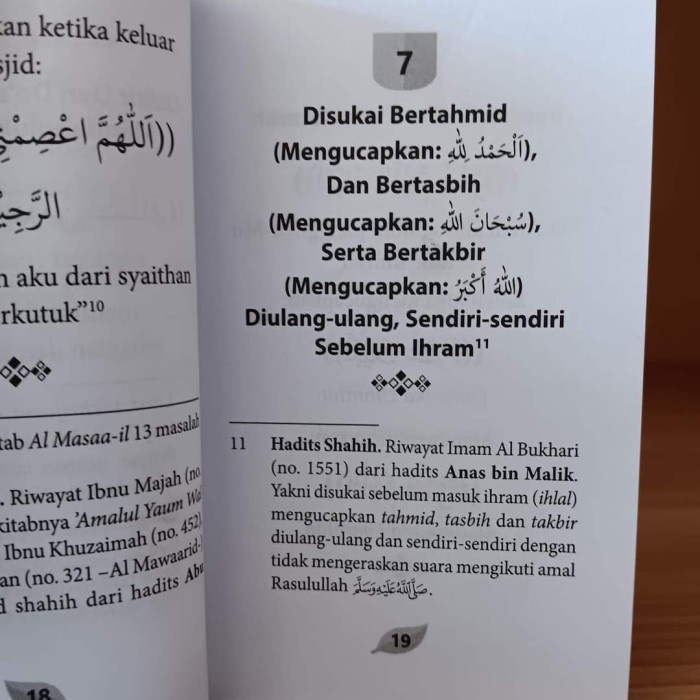 ketika keluar
((اَللَّهُمَّ اعْصِمْنِي
aku dari syaithan
10
tab Al Masaa-il 13 masalah
. Riwayat Ibnu Majah (no.
kitabnya 'Amalul Yaum
Ibnu Khuzaimah (no. 452),
(no. 321 – Al Mawaarid-
shahih dari hadits
18
7
Disukai Bertahmid
(Mengucapkan: اَلْحَمْدُ لِلّٰهِ),
Dan Bertasbih
(Mengucapkan: سُبْحَانَ اللّٰهِ),
Serta Bertakbir
(Mengucapkan: اللّٰهُ أَكْبَرُ)
Diulang-ulang, Sendiri-sendiri
Sebelum Ihram11
11 Hadits Shahih. Riwayat Imam Al Bukhari
(no. 1551) dari hadits Anas bin Malik.
Yakni disukai sebelum masuk ihram (ihlal)
mengucapkan tahmid, tasbih dan takbir
diulang-ulang dan sendiri-sendiri dengan
tidak mengeraskan suara mengikuti amal
Rasulullah ﷺ.
19